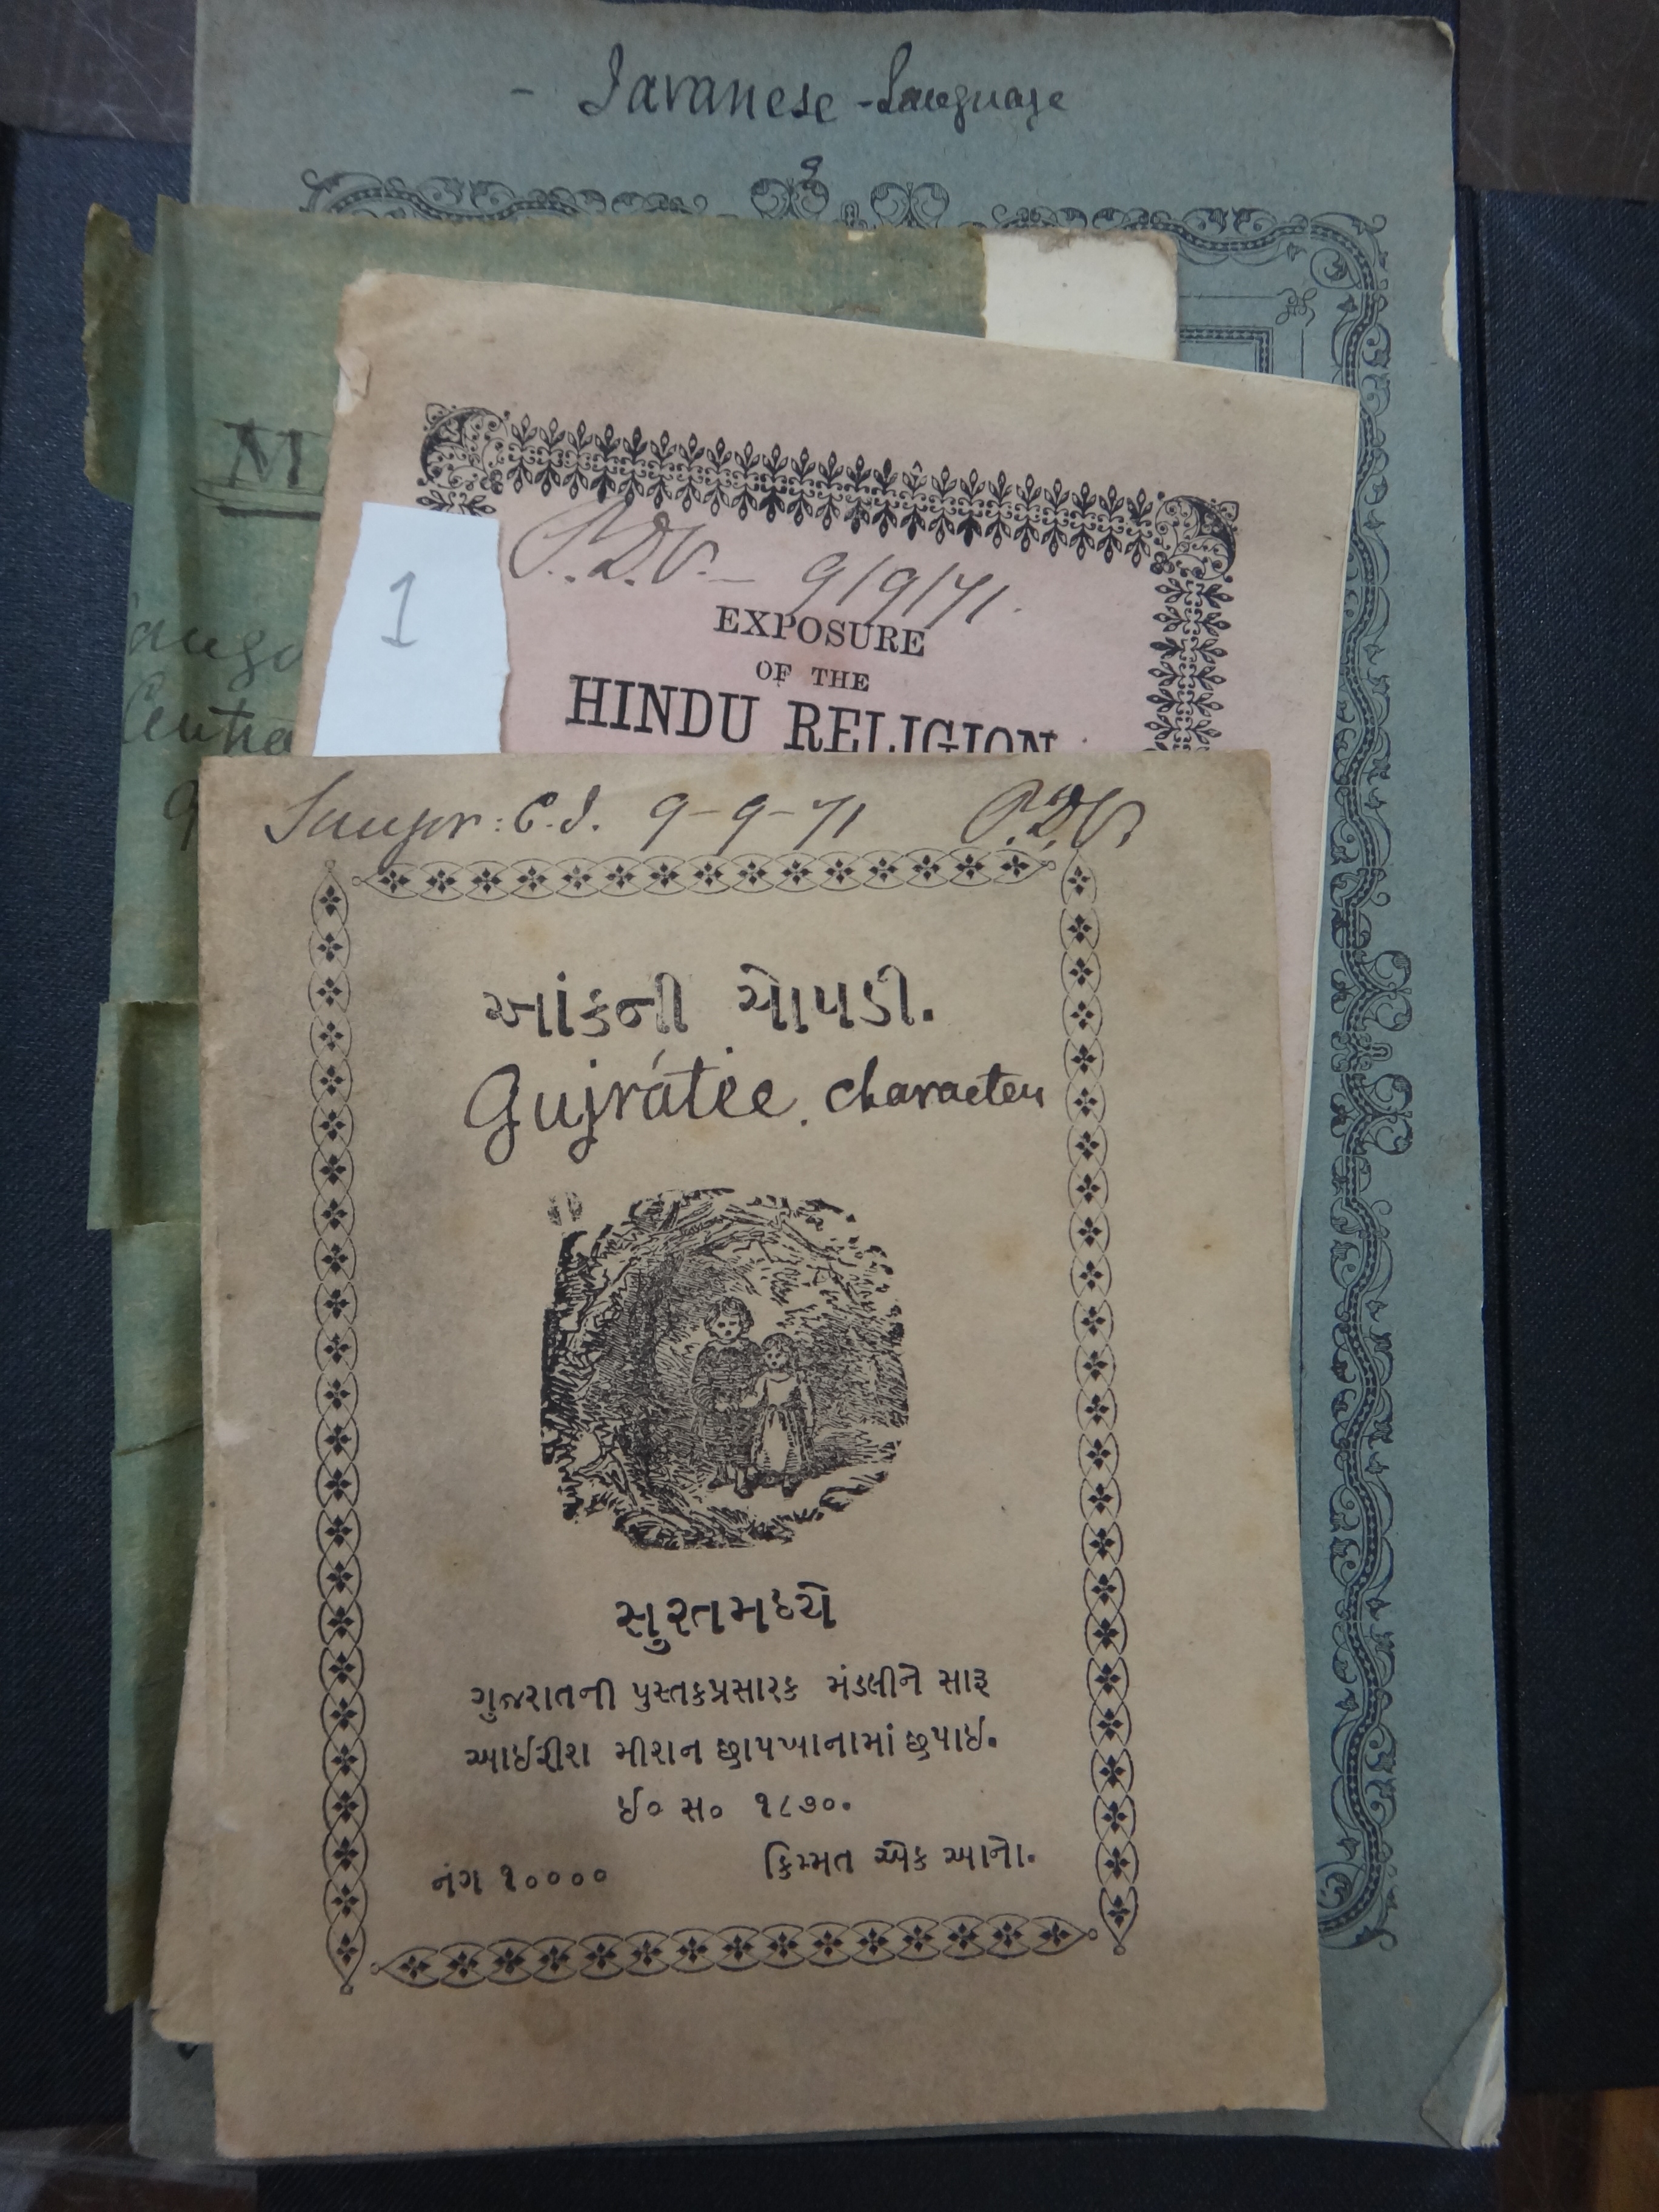 - Javanese - Language
M
1
P.D.V. - 9/9/71.
EXPOSURE
OF THE
HINDU RELIGION
Centra
Saugor: C.I. 9-9-71 P.D.V.
આંકની ચોપડી.
Gujrátee character
સુરતમધ્યે
ગુજરાતની પુસ્તકપ્રસારક મંડલીને સારૂ
આઈરીશ મીશન છાપખાનામાં છપાઈ.
ઈ૦ સ૦ ૧૮૭૦.
નંગ ૧૦૦૦૦
કિમ્મત એક આનો.